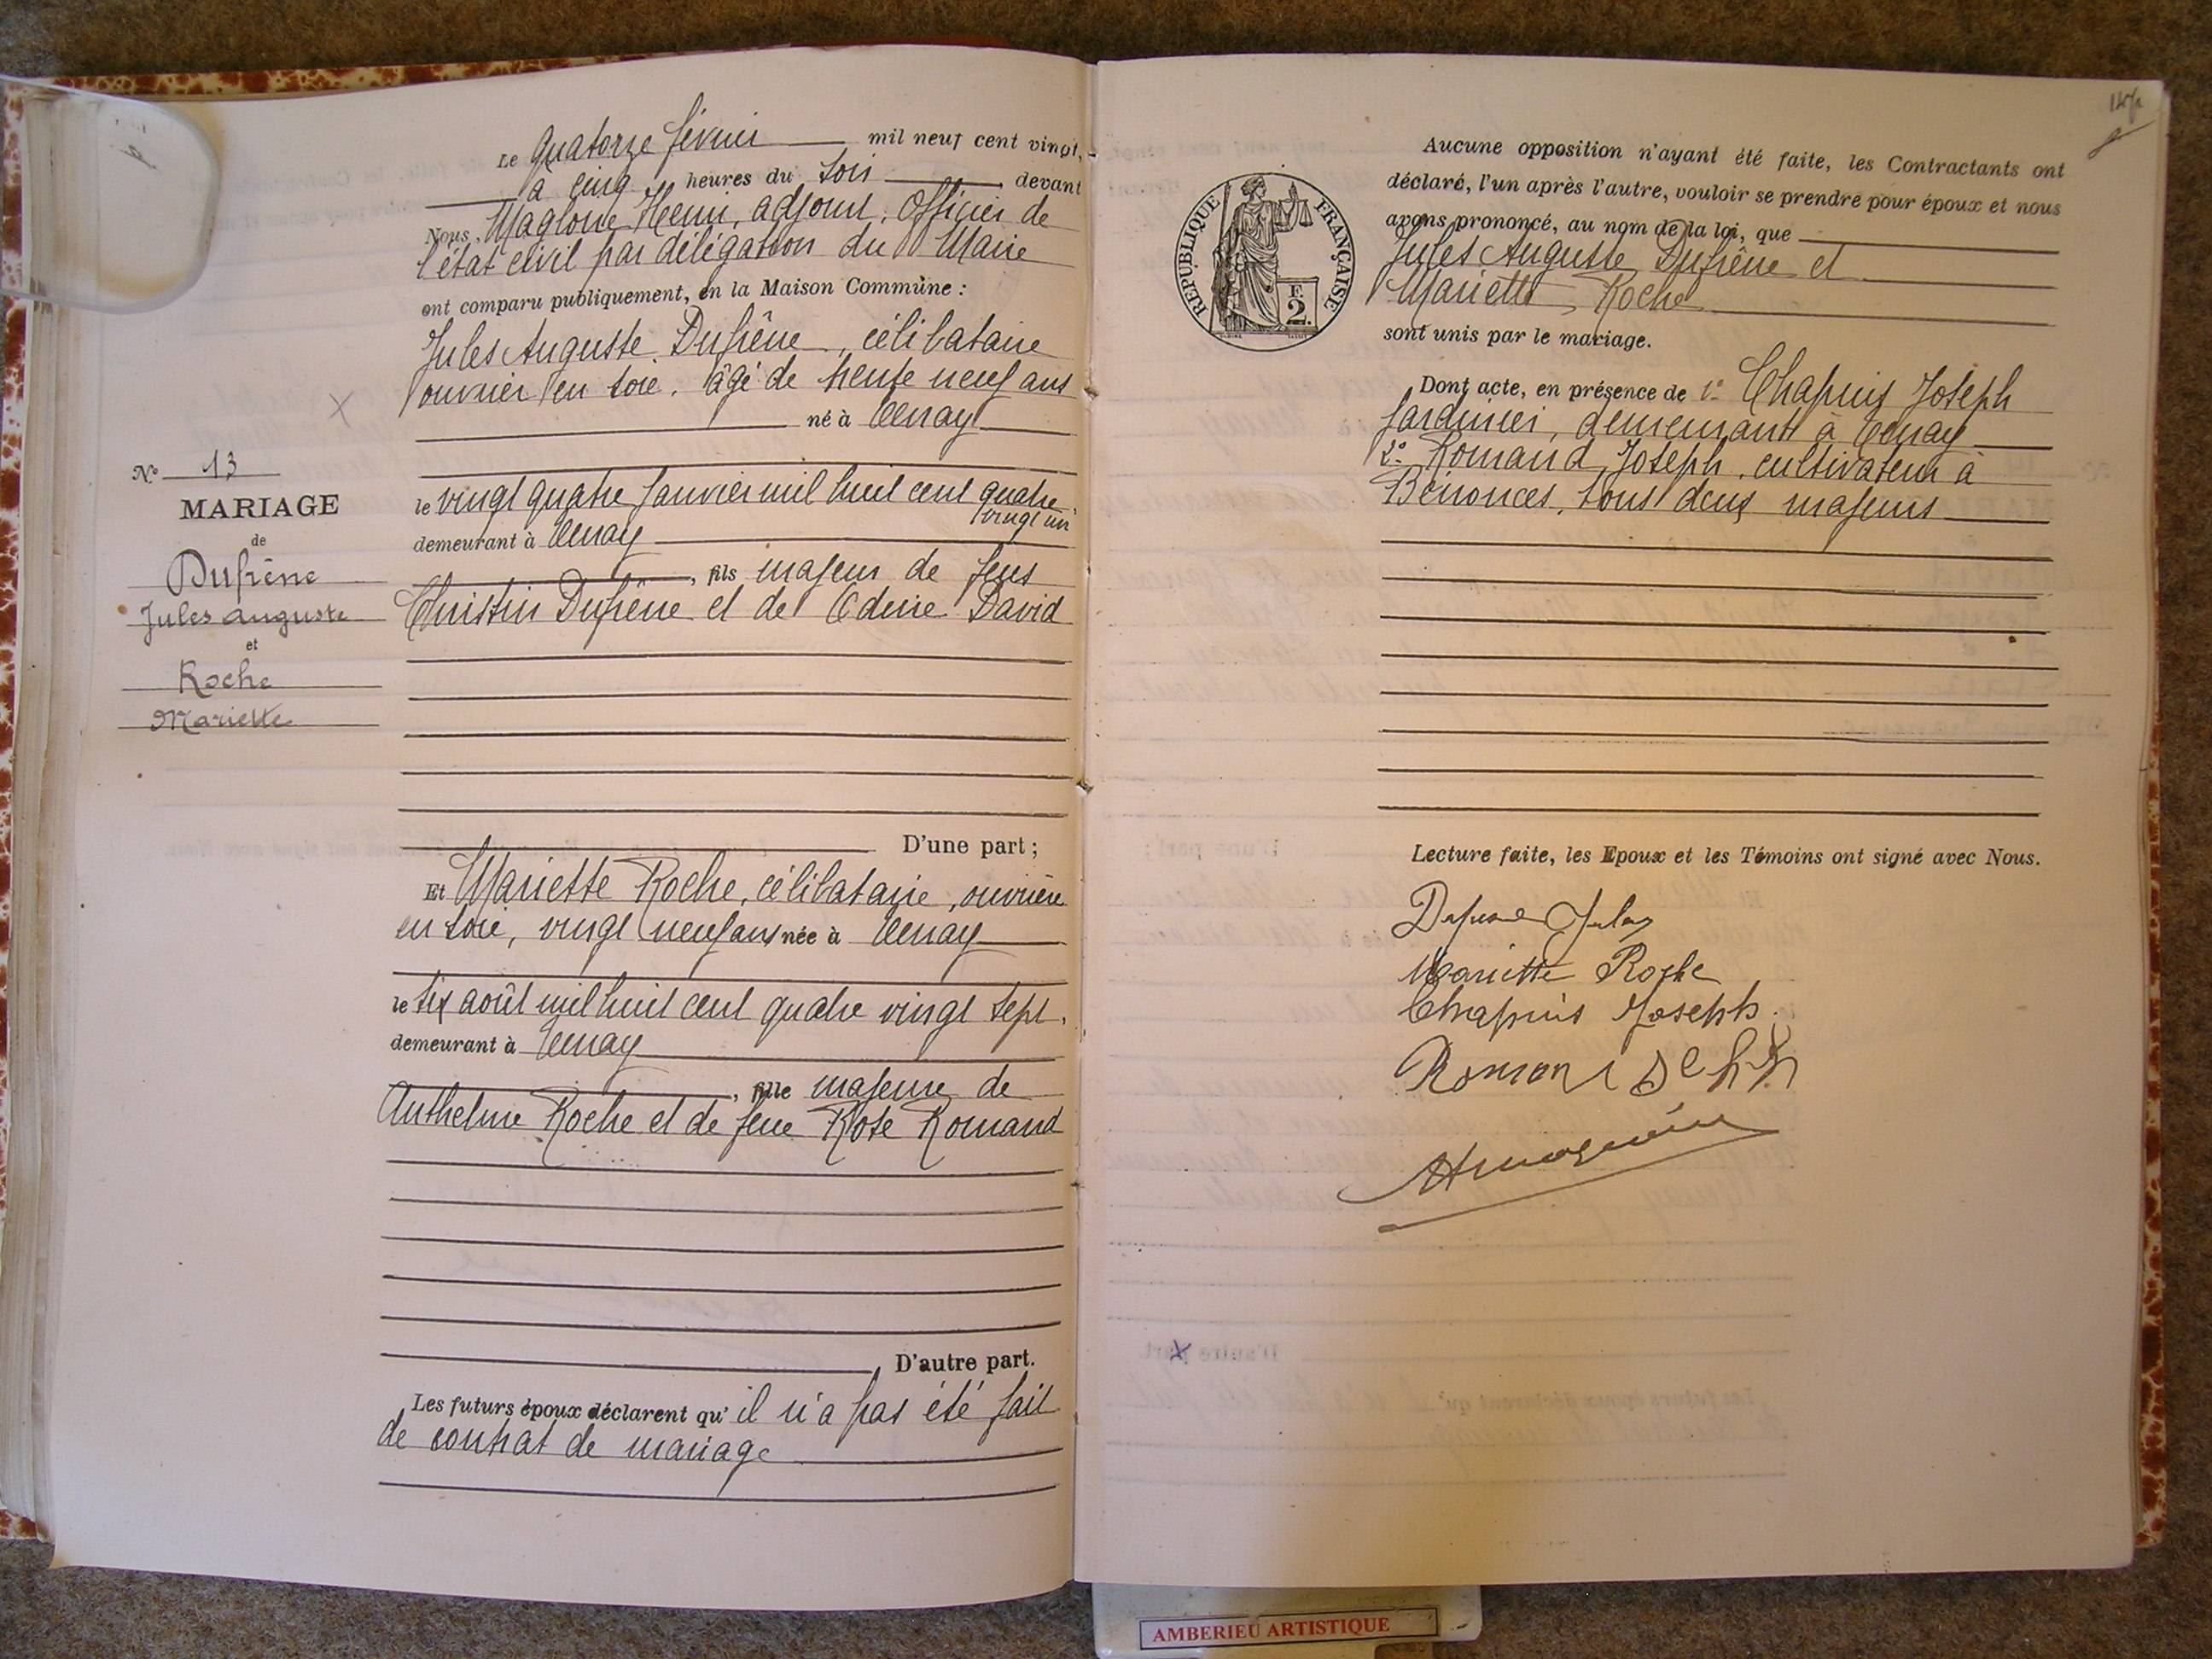 Le quatorze février mil neuf cent vingt,
à cinq heures du soir devant
Nous, Magloire Henri, adjoint, Officier de
l'état civil par délégation du Maire
ont comparu publiquement, en la Maison Commune :
Jules Auguste Dufrêne, célibataire
ouvrier en soie, âgé de trente neuf ans
né à Tenay
le vingt quatre janvier mil huit cent quatre
vingt un
demeurant à Tenay
, fils majeur de feus
Christin Dufrêne et de David
N° 13
MARIAGE
de
Dufrêne
Jules Auguste
et
Roche
Mariette
D'une part ;
Et Mariette Roche, célibataire, ouvrière
en soie, vingt neuf ans née à Tenay
le six août mil huit cent quatre vingt sept,
demeurant à Tenay
, fille majeure de
Anthelme Roche et de feue Rose Romand
D'autre part.
Les futurs époux déclarent qu' il n'a pas été fait
de contrat de mariage
Aucune opposition n'ayant été faite, les Contractants ont
déclaré, l'un après l'autre, vouloir se prendre pour époux et nous
avons prononcé, au nom de la loi, que
Jules Auguste Dufrêne et
Mariette Roche
sont unis par le mariage.
RÉPUBLIQUE FRANÇAISE
E.
2.
Dont acte, en présence de 1° Chapuis Joseph
jardinier, demeurant à Tenay
2° Romand Joseph, cultivateur à
Bénonces, tous deux majeurs
Lecture faite, les Epoux et les Témoins ont signé avec Nous.
Dufrene Jules
Mariette Roche
Chapuis Joseph
AMBERIEU ARTISTIQUE